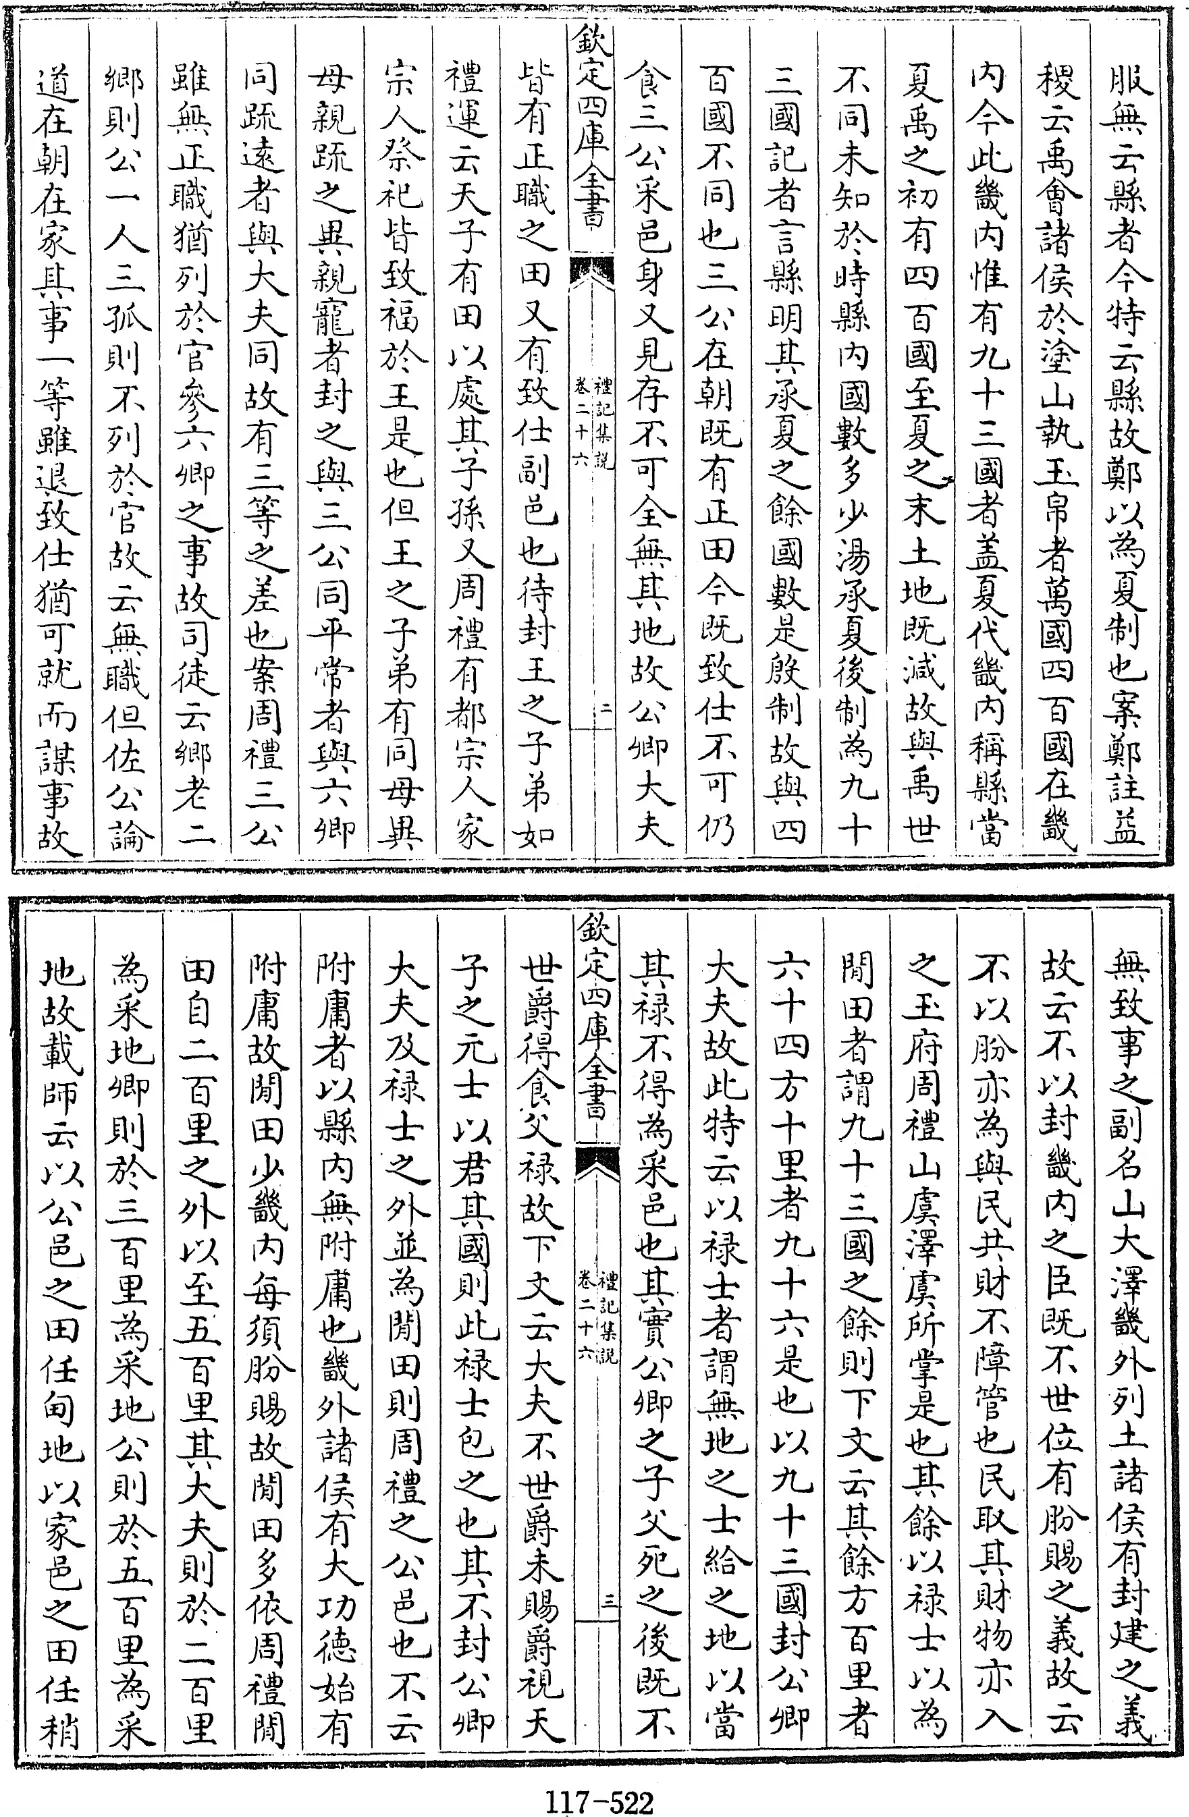 服無云縣者今特云縣故鄭以為夏制也案鄭註益
稷云禹會諸侯於塗山執玉帛者萬國四百國在畿
内今此畿内惟有九十三國者盖夏代畿内稱縣當
夏禹之初有四百國至夏之末土地既減故與禹世
不同未知於時縣内國數多少湯承夏後制為九十
三國記者言縣明其承夏之餘國數是殷制故與四
百國不同也三公在朝既有正田今既致仕不可仍
食三公采邑身又見存不可全無其地故公卿大夫
欽定四庫全書
禮記集説
卷二十六
二
皆有正職之田又有致仕副邑也待封王之子弟如
禮運云天子有田以處其子孫又周禮有都宗人家
宗人祭祀皆致福於王是也但王之子弟有同母異
母親疏之異親寵者封之與三公同平常者與六卿
同疏遠者與大夫同故有三等之差也案周禮三公
雖無正職猶列於官參六卿之事故司徒云鄉老二
鄉則公一人三孤則不列於官故云無職但佐公論
道在朝在家其事一等雖退致仕猶可就而謀事故
無致事之副名山大澤畿外列土諸侯有封建之義
故云不以封畿内之臣既不世位有朌賜之義故云
不以朌亦為與民共財不障管也民取其財物亦入
之玉府周禮山虞澤虞所掌是也其餘以禄士以為
閒田者謂九十三國之餘則下文云其餘方百里者
六十四方十里者九十六是也以九十三國封公卿
大夫故此特云以禄士者謂無地之士給之地以當
其禄不得為采邑也其實公卿之子父死之後既不
欽定四庫全書
禮記集説
卷二十六
三
世爵得食父禄故下文云大夫不世爵未賜爵視天
子之元士以君其國則此禄士包之也其不封公卿
大夫及禄士之外並為閒田則周禮之公邑也不云
附庸者以縣内無附庸也畿外諸侯有大功德始有
附庸故閒田少畿内每須朌賜故閒田多依周禮閒
田自二百里之外以至五百里其大夫則於二百里
為采地卿則於三百里為采地公則於五百里為采
地故載師云以公邑之田任甸地以家邑之田任稍
117-522